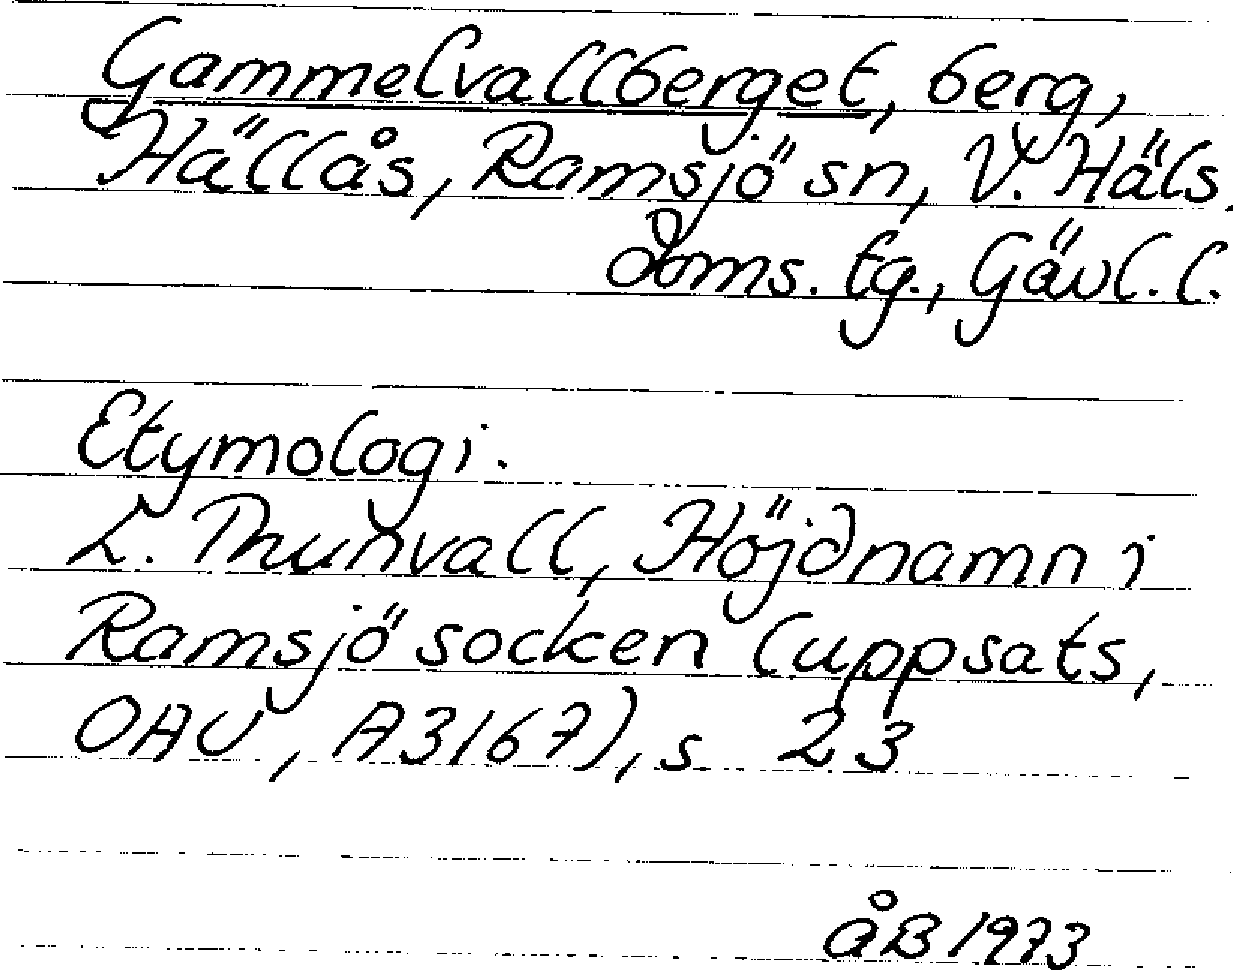 Gammelvallberget, berg,
Hällås, Ramsjö sn, V. Häls.
doms. tg., Gävl. l.
Etymologi.
L. Thunvall, Höjdnamn i
Ramsjö socken (uppsats,
OAU, A3167), s 23
åB 1973